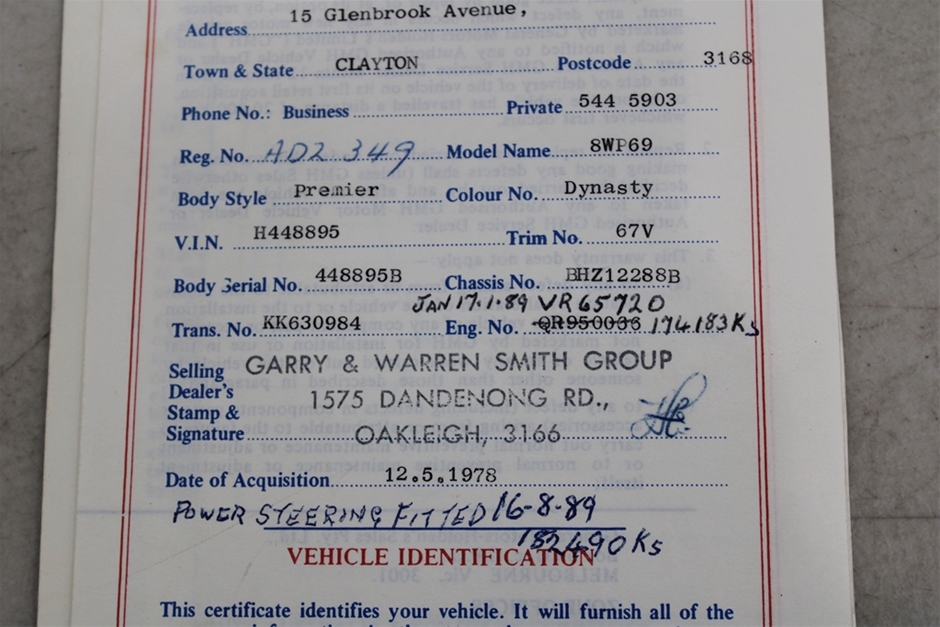 Address 15 Glenbrook Avenue,
Town & State CLAYTON Postcode 3168
Phone No.: Business Private 544 5903
Reg. No. AD2 349 Model Name 8WP69
Body Style Premier Colour No. Dynasty
V.I.N. H448895 Trim No. 67V
Body Serial No. 448895B Chassis No. BHZ12288B
JAN 17.1.89 VR65720
Trans. No. KK630984 Eng. No. QR950036 174183Ks
Selling Dealer's Stamp & Signature
GARRY & WARREN SMITH GROUP
1575 DANDENONG RD.,
OAKLEIGH, 3166
Date of Acquisition 12.5.1978
POWER STEERING FITTED 16-8-89
182490 Ks
VEHICLE IDENTIFICATION
This certificate identifies your vehicle. It will furnish all of the